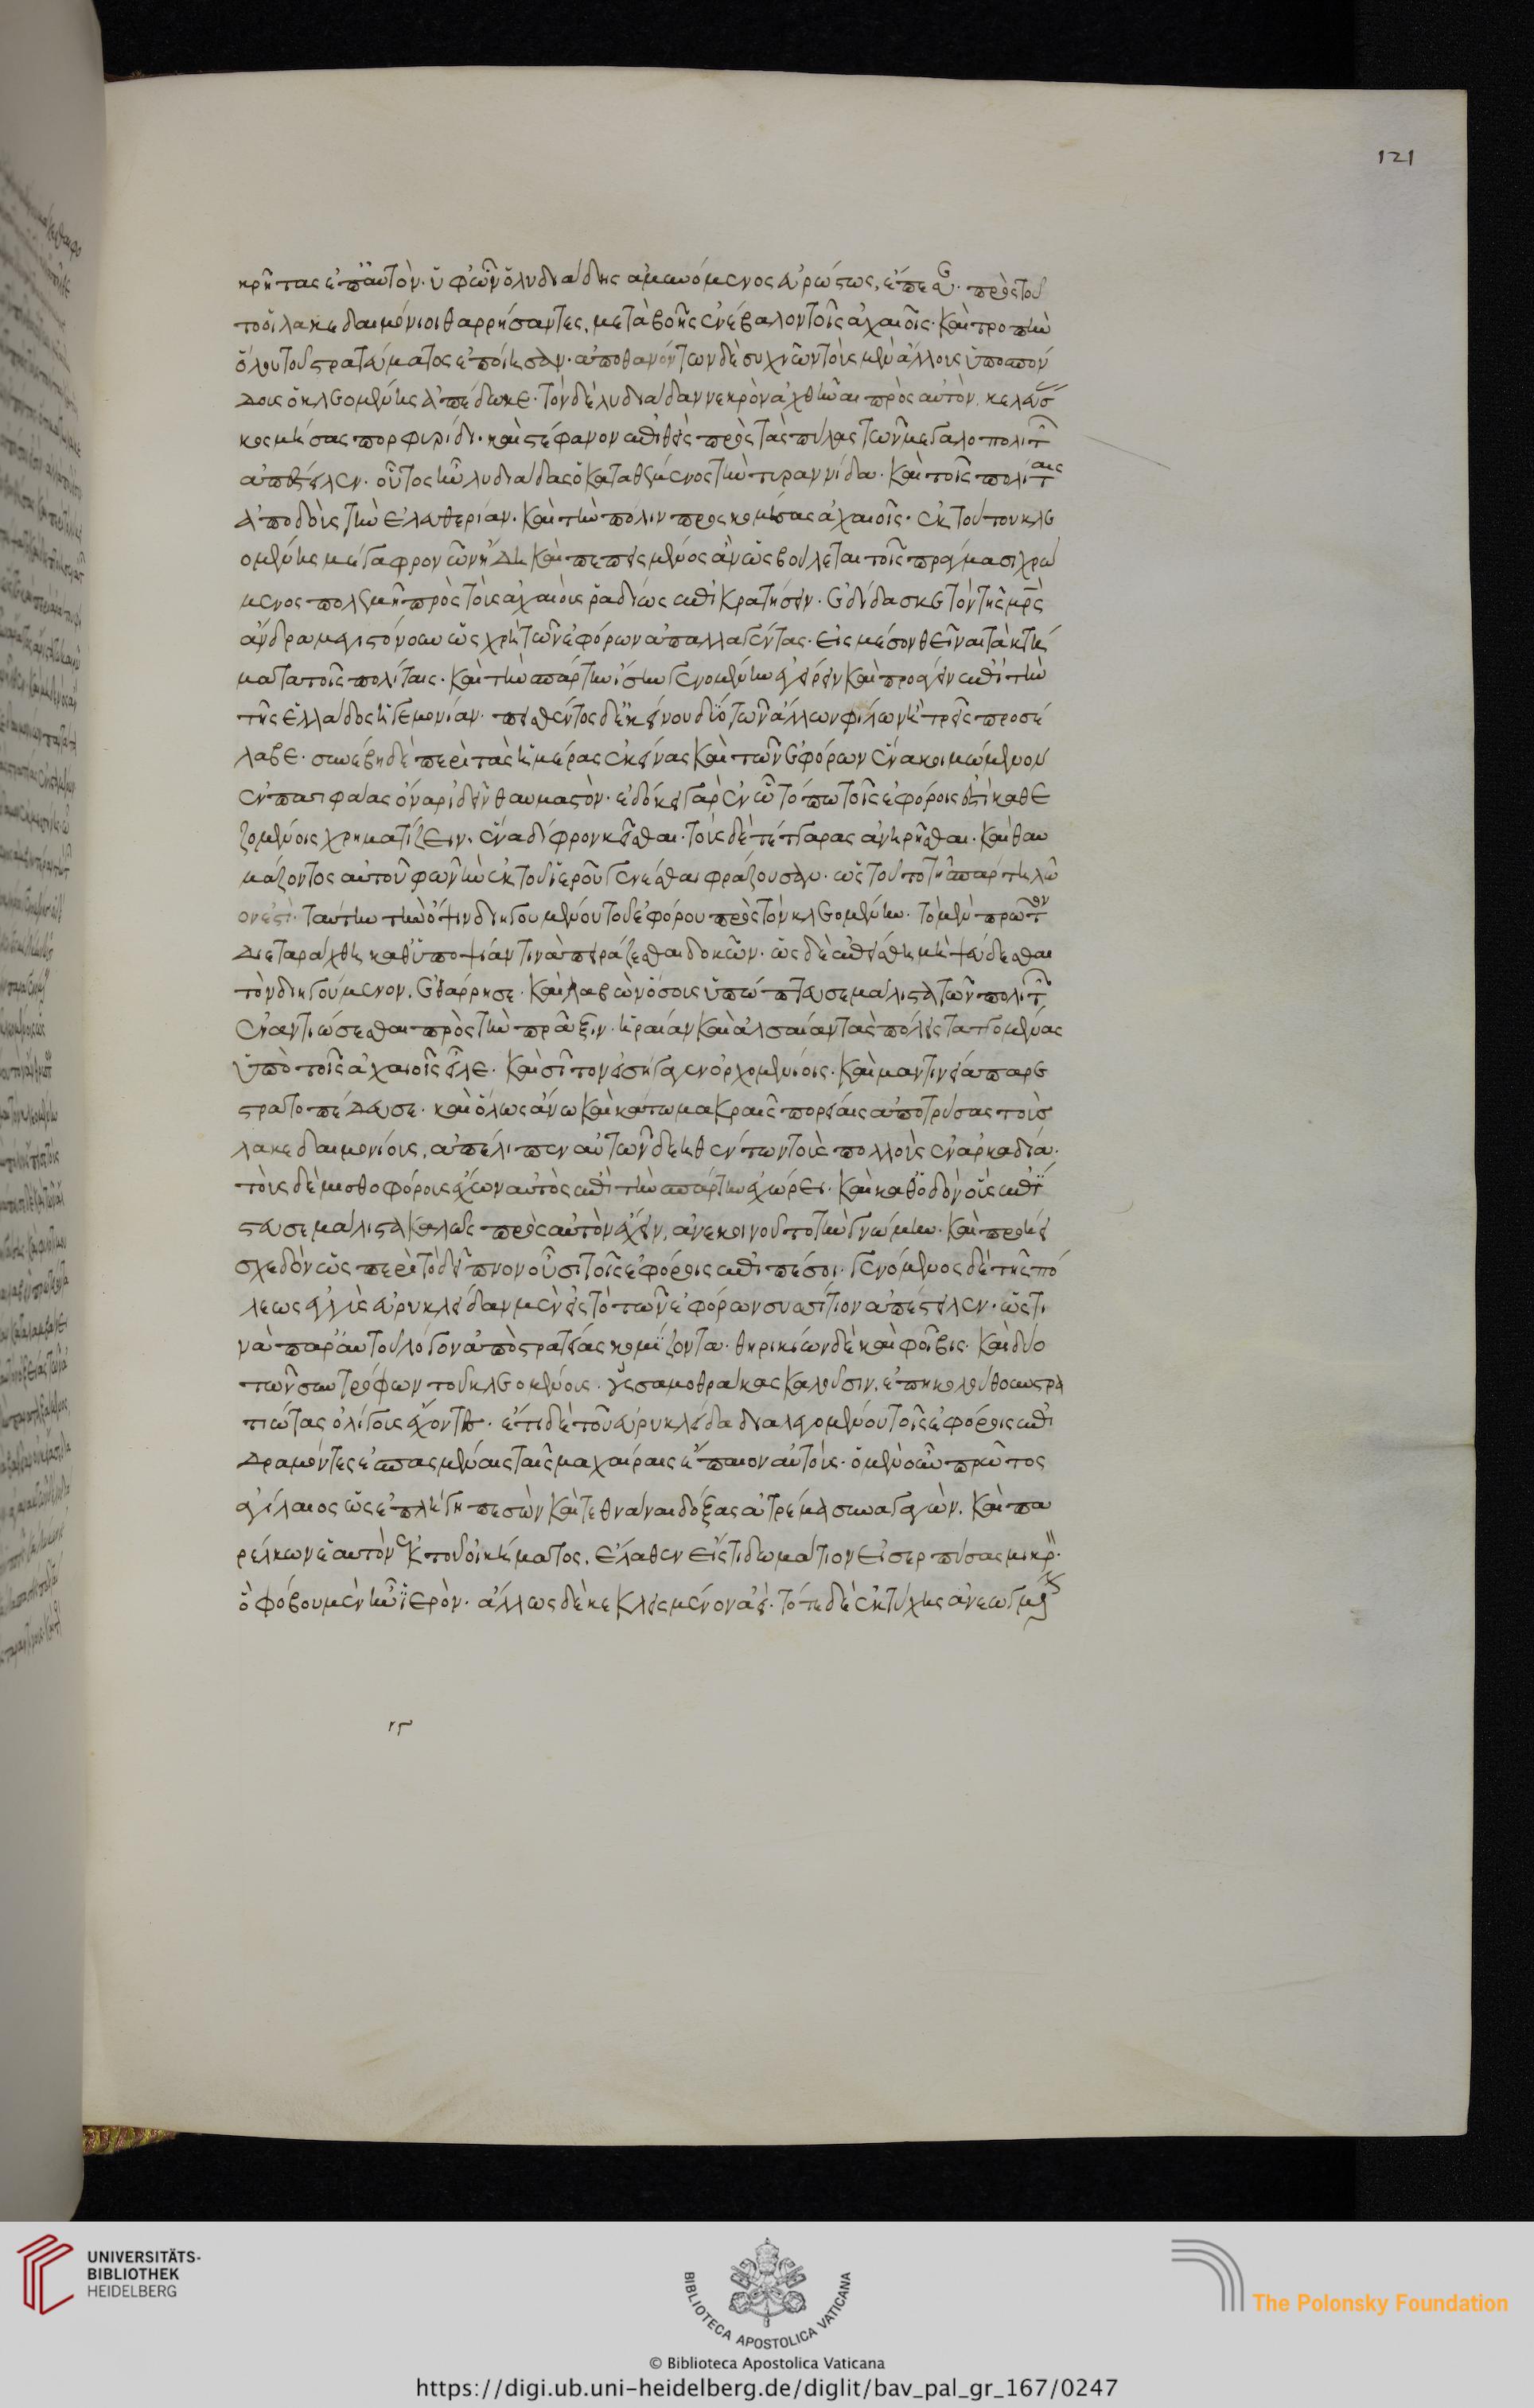 121
κρῆτας ἐπ᾽ αὐτὸν. ὑφ᾽ ὧν ὁ λυδιάδης ἀμυνόμενος εὐρώστως, ἔπεσε. πρὸς τοῦ
το οἱ λακεδαιμόνιοι θαρρήσαντες, μετὰ βοῆς ἐνέβαλον τοῖς ἀχαιοῖς. καὶ τροπὴν
ὅλου τοῦ στρατεύματος ἐποίησαν. ἀποθανόντων δὲ συχνῶν τοὺς μὲν ἄλλους ὑποσπόν
δους ὁ κλεομένης ἀπέδωκε. τὸν δὲ λυδιάδαν νεκρὸν ἀχθῆναι πρὸς αὐτὸν κελεύσ
κοσμήσας πορφυρίδι. καὶ στέφανον ἐπιθεὶς πρὸς τὰς πύλας τῶν μεγαλοπολιτ
ἀπέστειλεν. οὗτος ἦν λυδιάδας ὁ καταθέμενος τὴν τυραννίδα. καὶ τοῖς πολίταις
ἀποδοὺς τὴν ἐλευθερίαν. καὶ τὴν πόλιν προσκομίσας ἀχαιοῖς. ἐκ τούτου κλε
ομένης μέγα φρονῶν ἤδη καὶ πεπεισμένος ἂν ὡς βούλεται τοῖς πράγμασι χρώ
μενος πολεμῇ πρὸς τοὺς ἀχαιοὺς ῥᾳδίως ἐπικρατήσειν. ἐδίδασκε τὸν τῆς μρς
ἄνδρα μεγιστόνουν ὡς χρὴ τῶν ἐφόρων ἀπαλλαγέντας. εἰς μέσον θεῖναι τὰ κτή
ματα τοῖς πολίταις. καὶ τὴν σπάρτην ἴσην γενομένην ἐγείρειν καὶ προάγειν ἐπὶ τὴν
τῆς ἑλλάδος ἡγεμονίαν. πεισθέντος δ᾽ ἐκείνου δύο τῶν ἄλλων φίλων ἢ τρεῖς προσέ
λαβε. συνέβη δὲ περὶ τὰς ἡμέρας ἐκείνας καὶ τῶν ἐφόρων ἕνα κοιμώμενον
ἐν πασιφάας ὄναρ ἰδεῖν θαυμαστόν. ἐδόκει γὰρ ἐν ᾧ τόπῳ τοῖς ἐφόροις ἐστὶ καθε
ζομένοις χρηματίζειν. ἕνα δίφρον κεῖσθαι. τοὺς δὲ τέτταρας ἀνῃρῆσθαι. καὶ θαυ
μάζοντος αὐτοῦ φωνὴν ἐκ τοῦ ἱεροῦ γενέσθαι φράζουσαν. ὡς τοῦτο τῇ σπάρτῃ λῷ
ον ἐστὶ. ταύτην τὴν ὄψιν διηγουμένου τοῦ ἐφόρου πρὸς τὸν κλεομένην. τὸ μὲν πρῶτον
διεταράχθη καθ᾽ ὑποψίαν τινὰ πειράζεσθαι δοκῶν. ὡς δὲ ἐπείσθη μὴ ψεύδεσθαι
τὸν διηγούμενον, ἐθάρρησε. καὶ λαβὼν ὅσους ὑπώπτευσε μάλιστα τῶν πολιτ
ἐναντιώσεσθαι πρὸς τὴν πρᾶξιν. ἡραίαν καὶ ἀλσαίαν τὰς πόλεις ταττομένας
ὑπὸ τοῖς ἀχαιοῖς εἷλε. καὶ σῖτον εἰσήγαγεν ὀρχομενίοις. καὶ μαντινείᾳ παρε
στρατοπέδευσε. καὶ ὅλως ἄνω καὶ κάτω μακραῖς πορείαις ἀποτρύσας τοὺς
λακεδαιμονίους, ἀπέλιπεν αὐτῶν δεηθέντων τοὺς πολλοὺς ἐν ἀρκαδίᾳ.
τοὺς δὲ μισθοφόρους ἔχων αὐτὸς ἐπὶ τὴν σπάρτην ἐχώρει. καὶ καθ᾽ ὁδὸν οἷς ἐπί
στευσε μάλιστα καλῶς πρὸς αὐτὸν ἔχειν, ἀνεκοινοῦτο τὴν γνώμην. καὶ προῄει
σχεδὸν ὡς περὶ τὸ δεῖπνον οὖσι τοῖς ἐφόροις ἐπιπέσοι. γενόμενος δὲ τῆς πό
λεως ἐγγὺς εὐρυκλείδαν μὲν εἰς τὸ τῶν ἐφόρων συσσίτιον ἀπέστειλεν. ὥς τι
νὰ παρ᾽ αὐτοῦ λόγον ἀπὸ στρατείας κομίζοντα. θηρικίων δὲ καὶ φοῖβις. καὶ δύο
τῶν συντρόφων τοῦ κλεομένους. οὓς σαμοθράκας καλοῦσιν, ἐπηκολούθουν στρα
τιώτας ὀλίγους ἔχοντες. ἔτι δὲ τοῦ εὐρυκλείδα διαλεγομένου τοῖς ἐφόροις ἐπι
δραμόντες ἐσπασμέναις ταῖς μαχαίραις ἔπαιον αὐτούς. ὁ μὲν οὖν πρῶτος
ἀγίλαιος ὡς ἐπλήγη πεσὼν καὶ τεθνάναι δόξας ἀτρέμα συναγαγὼν. καὶ πα
ρέλκων ἑαυτὸν ἐκ τοῦ οἰκήματος, ἔλαθεν εἴς τι δωμάτιον εἰσερπύσας μικρ.
ὃ φόβου μὲν ἦν ἱερὸν. ἄλλως δὲ κεκλεισμένον ἀεί. τότε δὲ ἐκ τύχης ἀνεωγμέ
UNIVERSITÄTS-
BIBLIOTHEK
HEIDELBERG
BIBLIOTECA APOSTOLICA VATICANA
The Polonsky Foundation
© Biblioteca Apostolica Vaticana
https://digi.ub.uni-heidelberg.de/diglit/bav_pal_gr_167/0247